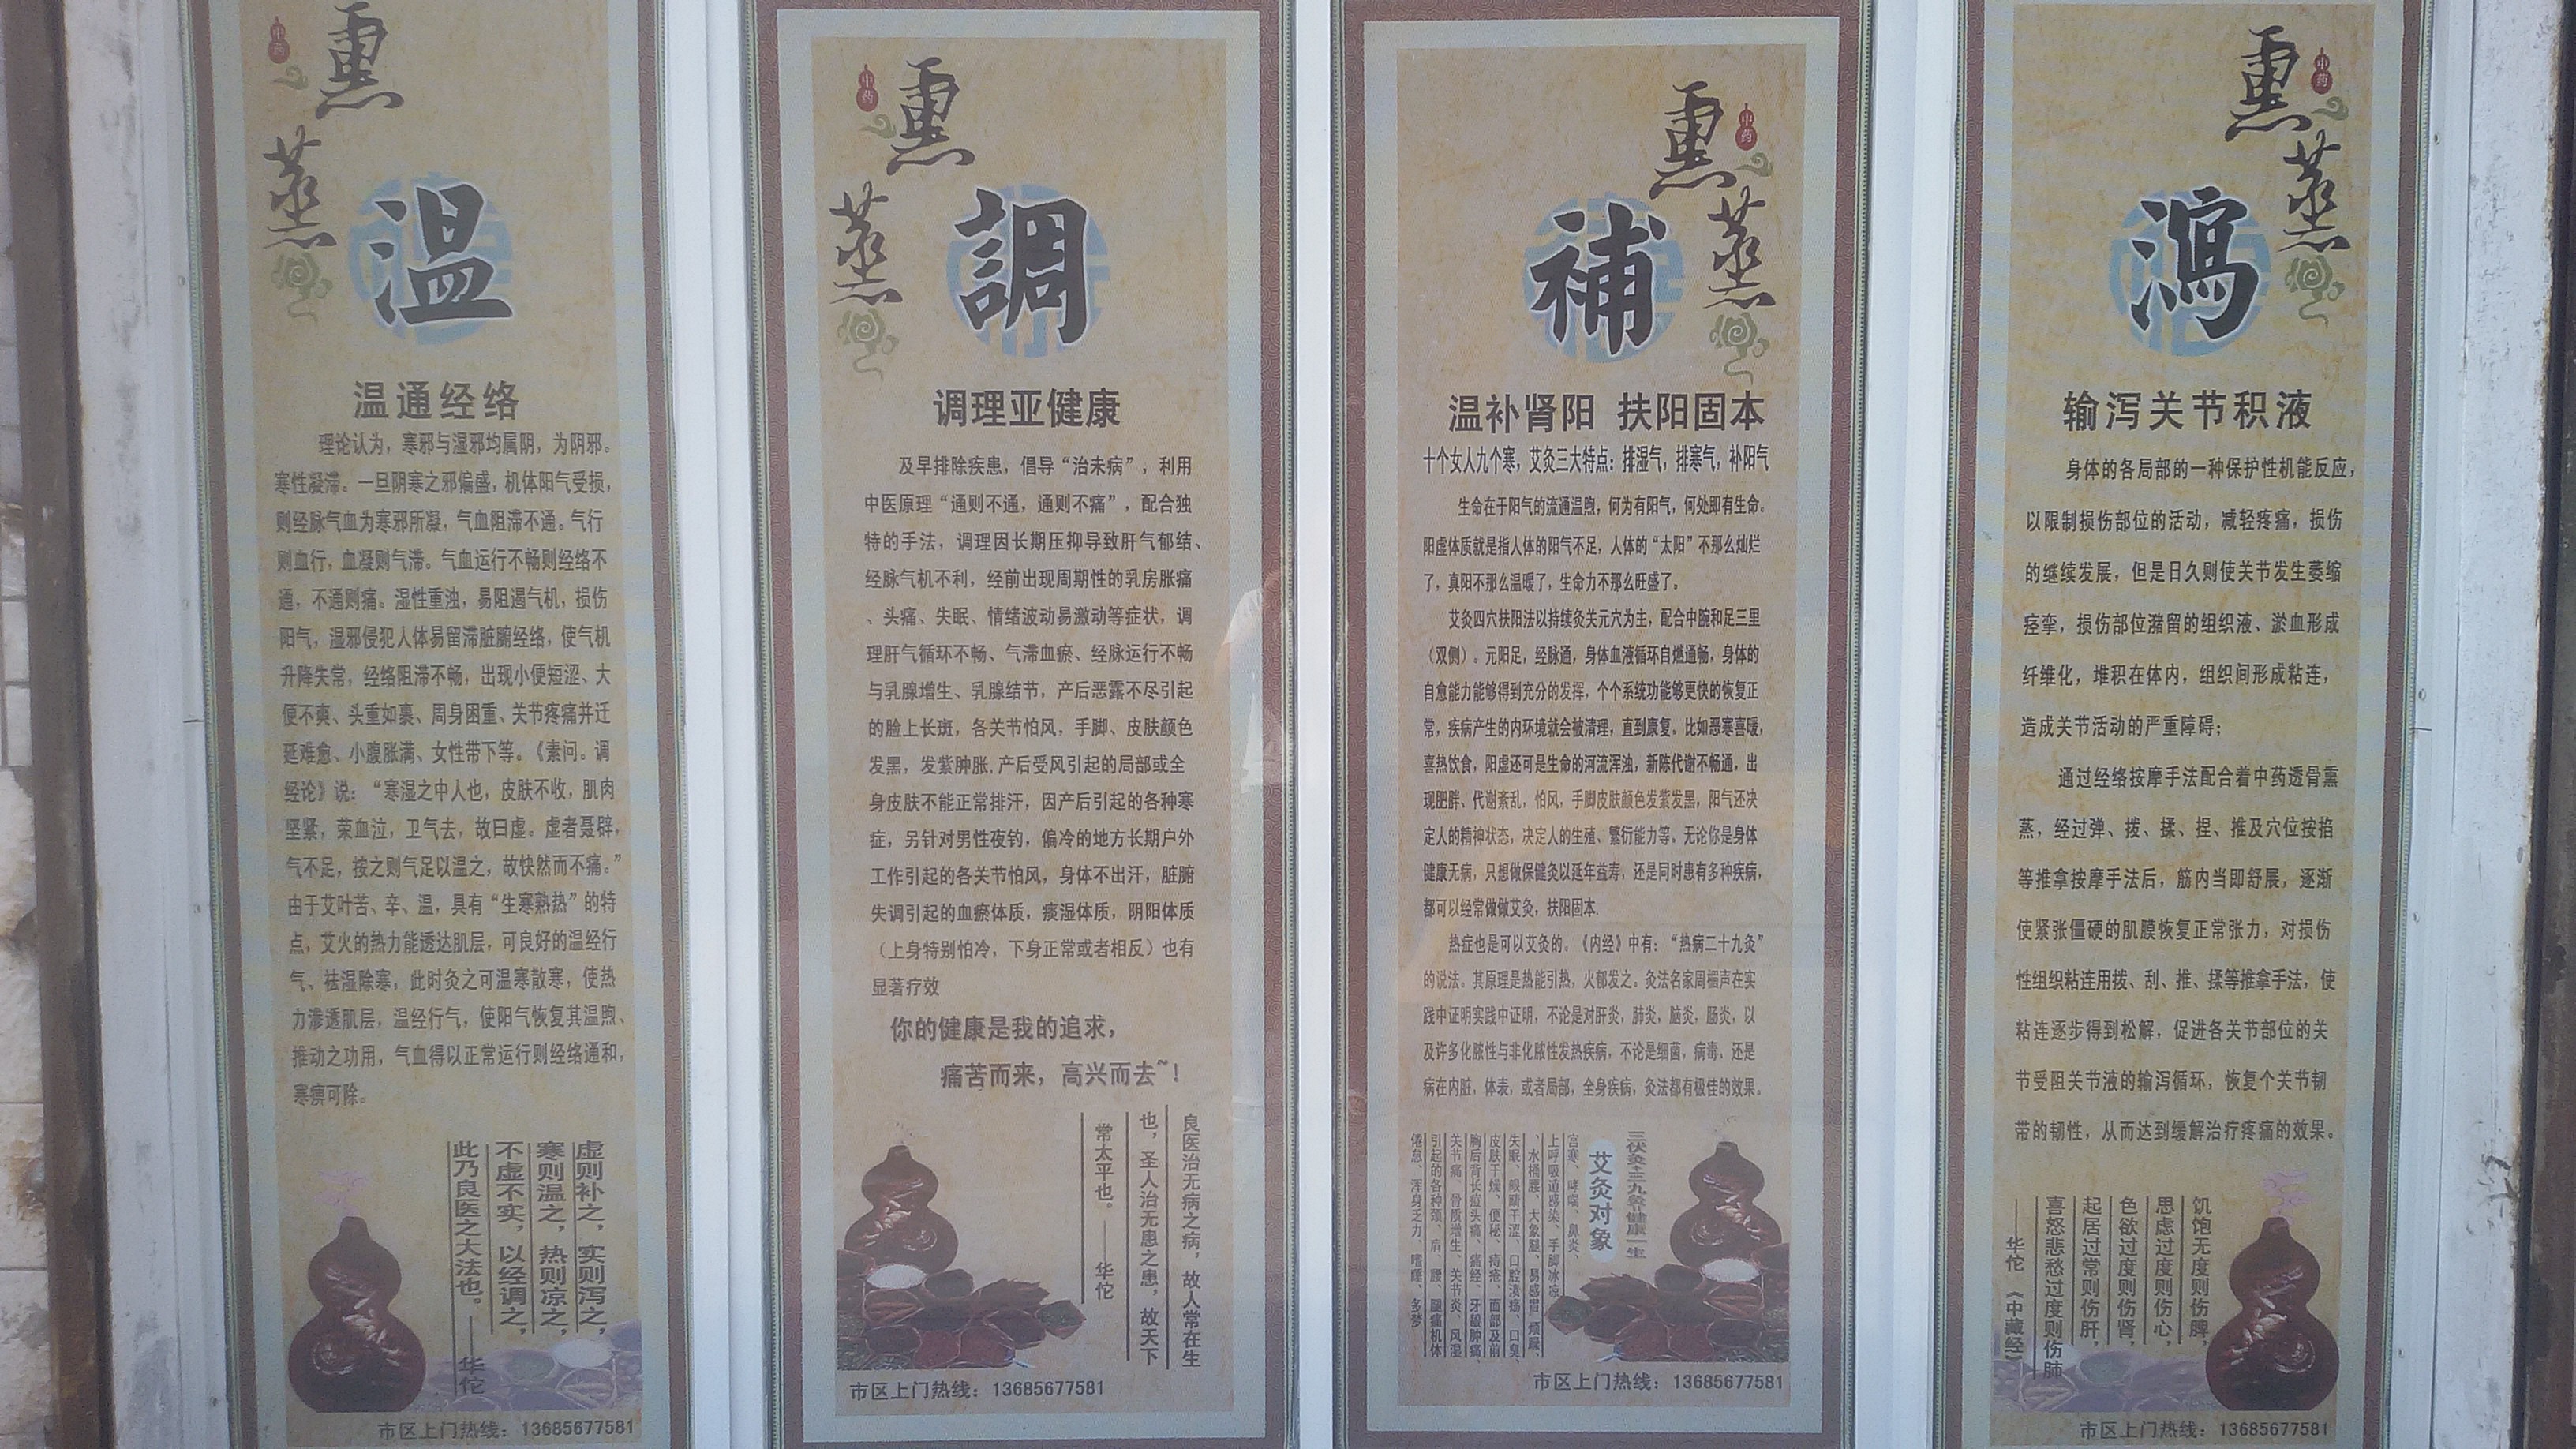 中药
熏
蒸
温
温通经络
理论认为，寒邪与湿邪均属阴，为阴邪。
寒性凝滞。一旦阴寒之邪偏盛，机体阳气受损，
则经脉气血为寒邪所凝，气血阻滞不通。气行
则血行，血凝则气滞。气血运行不畅则经络不
通，不通则痛。湿性重浊，易阻遏气机，损伤
阳气，湿邪侵犯人体易留滞脏腑经络，使气机
升降失常，经络阻滞不畅，出现小便短涩、大
便不爽、头重如裹、周身困重、关节疼痛并迁
延难愈、小腹胀满、女性带下等。《素问。调
经论》说：“寒湿之中人也，皮肤不收，肌肉
坚紧，荣血泣，卫气去，故曰虚。虚者聂辟，
气不足，按之则气足以温之，故快然而不痛。”
由于艾叶苦、辛、温，具有“生寒熟热”的特
点，艾火的热力能透达肌层，可良好的温经行
气、祛湿除寒，此时灸之可温寒散寒，使热
力渗透肌层，温经行气，使阳气恢复其温煦、
推动之功用，气血得以正常运行则经络通和，
寒痹可除。
虚则补之，实则泻之，
寒则温之，热则凉之，
不虚不实，以经调之，
此乃良医之大法也。——华佗
市区上门热线：13685677581
中药
熏
蒸
調
调理亚健康
及早排除疾患，倡导“治未病”，利用
中医原理“通则不通，通则不痛”，配合独
特的手法，调理因长期压抑导致肝气郁结、
经脉气机不利，经前出现周期性的乳房胀痛
、头痛、失眠、情绪波动易激动等症状，调
理肝气循环不畅、气滞血瘀、经脉运行不畅
与乳腺增生、乳腺结节，产后恶露不尽引起
的脸上长斑，各关节怕风，手脚、皮肤颜色
发黑，发紫肿胀.产后受风引起的局部或全
身皮肤不能正常排汗，因产后引起的各种寒
症，另针对男性夜钓，偏冷的地方长期户外
工作引起的各关节怕风，身体不出汗，脏腑
失调引起的血瘀体质，痰湿体质，阴阳体质
（上身特别怕冷，下身正常或者相反）也有
显著疗效
你的健康是我的追求，
痛苦而来，高兴而去~！
良医治无病之病，故人常在生
也，圣人治无患之患，故天下
常太平也。——华佗
市区上门热线：13685677581
中药
熏
蒸
補
温补肾阳 扶阳固本
十个女人九个寒，艾灸三大特点：排湿气，排寒气，补阳气
生命在于阳气的流通温煦，何为有阳气，何处即有生命。
阳虚体质就是指人体的阳气不足，人体的“太阳”不那么灿烂
了，真阳不那么温暖了，生命力不那么旺盛了。
艾灸四穴扶阳法以持续灸关元穴为主，配合中腕和足三里
（双侧）。元阳足，经脉通，身体血液循环自燃通畅，身体的
自愈能力能够得到充分的发挥，个个系统功能够更快的恢复正
常，疾病产生的内环境就会被清理，直到康复。比如恶寒喜暖，
喜热饮食，阳虚还可是生命的河流浑浊，新陈代谢不畅通，出
现肥胖、代谢紊乱，怕风，手脚皮肤颜色发紫发黑，阳气还决
定人的精神状态，决定人的生殖、繁衍能力等，无论你是身体
健康无病，只想做保健灸以延年益寿，还是同时患有多种疾病，
都可以经常做做艾灸，扶阳固本.
热症也是可以艾灸的。《内经》中有：“热病二十九灸”
的说法。其原理是热能引热，火郁发之。灸法名家周楣声在实
践中证明实践中证明，不论是对肝炎，肺炎，脑炎，肠炎，以
及许多化脓性与非化脓性发热疾病，不论是细菌，病毒，还是
病在内脏，体表，或者局部，全身疾病，灸法都有极佳的效果。
三伏灸+三九灸=健康一生
艾灸对象
宫寒、哮喘、鼻炎、
上呼吸道感染、手脚冰凉
、水桶腰、大象腿、易感冒、烦躁、
失眠、眼睛干涩、口腔溃疡、口臭、
皮肤干燥、便秘、痔疮、面部及前
胸后背长痘头痛、痛经、牙龈肿痛、
关节痛、骨质增生、关节炎、风湿
引起的各种颈、肩、腰、腿痛机体
倦怠、浑身乏力、嗜睡、多梦
市区上门热线：13685677581
中药
熏
蒸
瀉
输泻关节积液
身体的各局部的一种保护性机能反应，
以限制损伤部位的活动，减轻疼痛，损伤
的继续发展，但是日久则使关节发生萎缩
痉挛，损伤部位潴留的组织液、淤血形成
纤维化，堆积在体内，组织间形成粘连，
造成关节活动的严重障碍；
通过经络按摩手法配合着中药透骨熏
蒸，经过弹、拨、揉、捏、推及穴位按掐
等推拿按摩手法后，筋内当即舒展，逐渐
使紧张僵硬的肌膜恢复正常张力，对损伤
性组织粘连用拨、刮、推、揉等推拿手法，使
粘连逐步得到松解，促进各关节部位的关
节受阻关节液的输泻循环，恢复个关节韧
带的韧性，从而达到缓解治疗疼痛的效果。
饥饱无度则伤脾，
思虑过度则伤心，
色欲过度则伤肾，
起居过常则伤肝，
喜怒悲愁过度则伤肺
——华佗《中藏经》
市区上门热线：13685677581